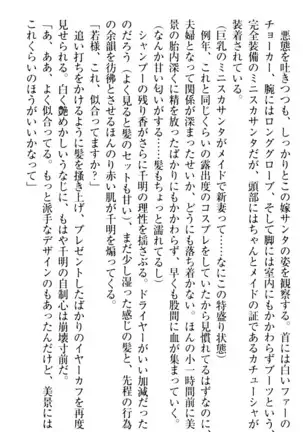 悪態を吐きつつも、しっかりとこの嫁サンタの姿を観察する。首には白いファー
チョーカー、腕にはロンググローブ、そして脚には室内にもかかわらずブーツという、
完全装備のミニスカサンタだが、頭部にはちゃんとメイドの証であるカチューシャが
装着されている。
（巨乳のミニスカサンタがメイドで新妻って……なにこの特盛り状態）
例年、これと同じくらいの露出度のコスプレをしていたから見慣れてるはずなのに、
夫婦となって関係が深まったせいか、どうにも落ち着かない。ほんの小一時間前に美
景の胎内深くに精を放ったばかりにもかかわらず、早くも股間に血が集まっていく。
（なんか甘い匂いがする……髪もちょっと濡れてるし）
シャンプーの残り香がさらに千明の理性を揺さぶる。ドライヤーがいい加減だった
のだろう（よく見ると髪のセットも甘い）、まだ少し湿った感じの髪と、先程の行為
の余韻を彷彿とさせるほんのり赤い肌が千明を煽ってくる。
「若様、これ、似合ってますか？」
追い打ちをかけるように髪を掻き上げ、プレゼントしたばかりのイヤーカフを再度
見せられる。白く艶めかしいうなじに、もはや千明の自制心は崩壊寸前だ。
「あ、ああ、よく似合ってる。もっと派手なデザインのもあったんだけど、美景には
これくらいのほうがいいかなって」